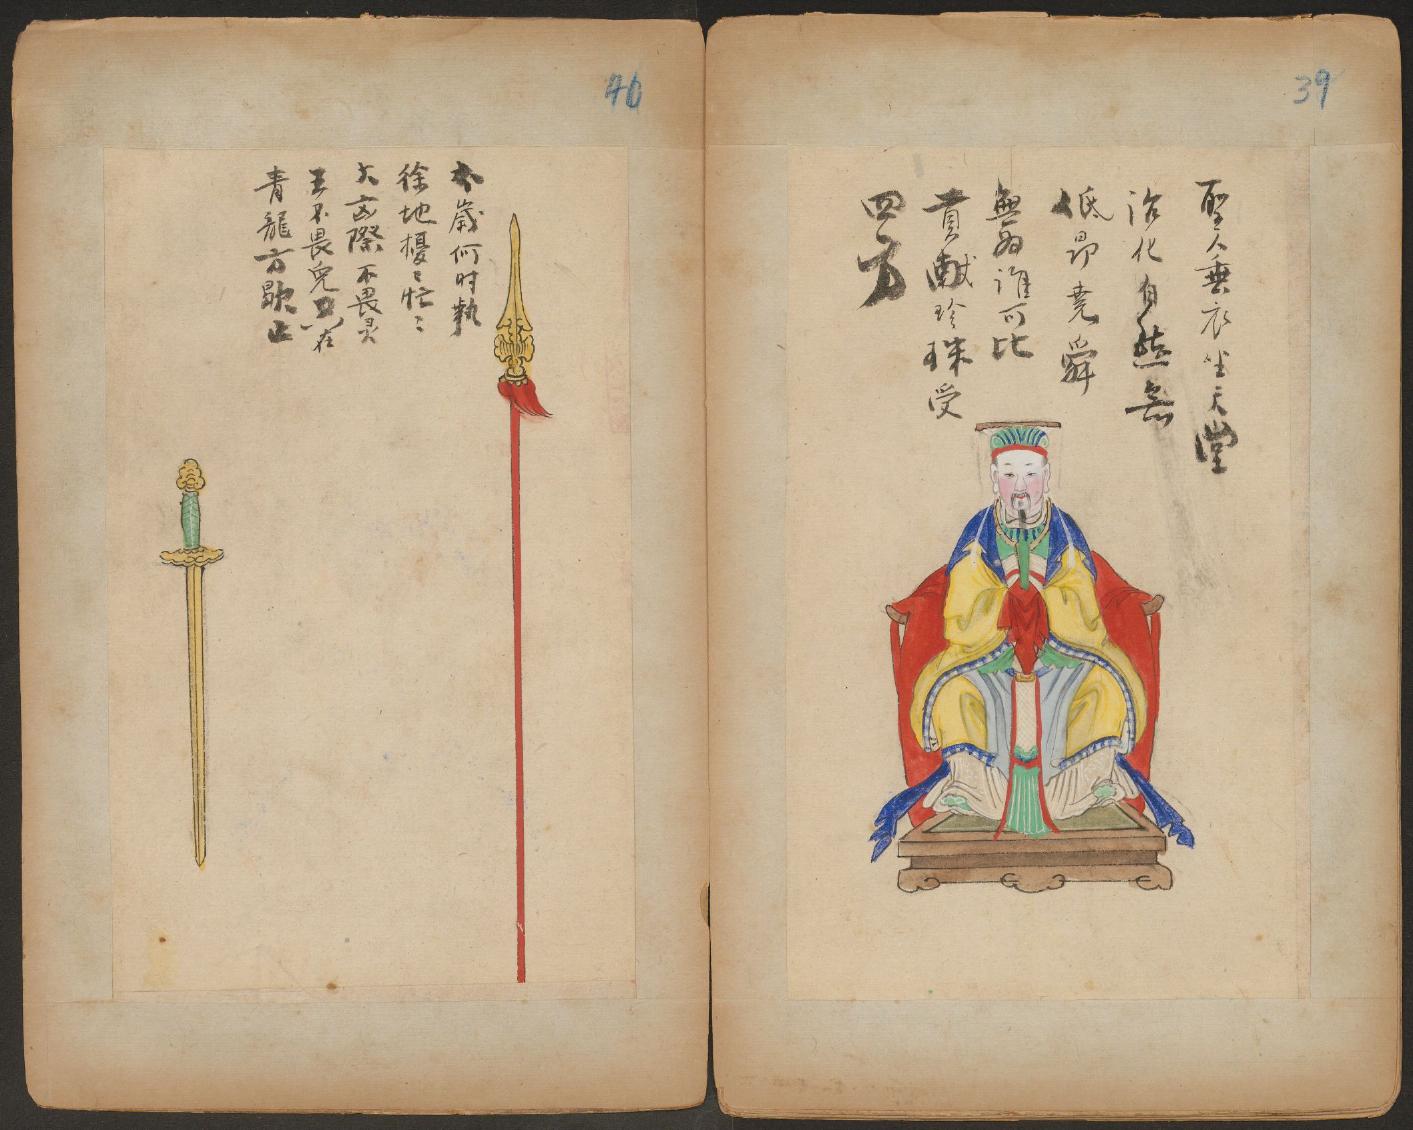 39
聖人垂衣坐天堂
治化自然無
低昂堯舜
無為誰可比
貢獻珍珠受
四方
40
歲何时執
徐地擾〻忙〻
大 際不畏灵
王不畏兔只在
青龍方歇止